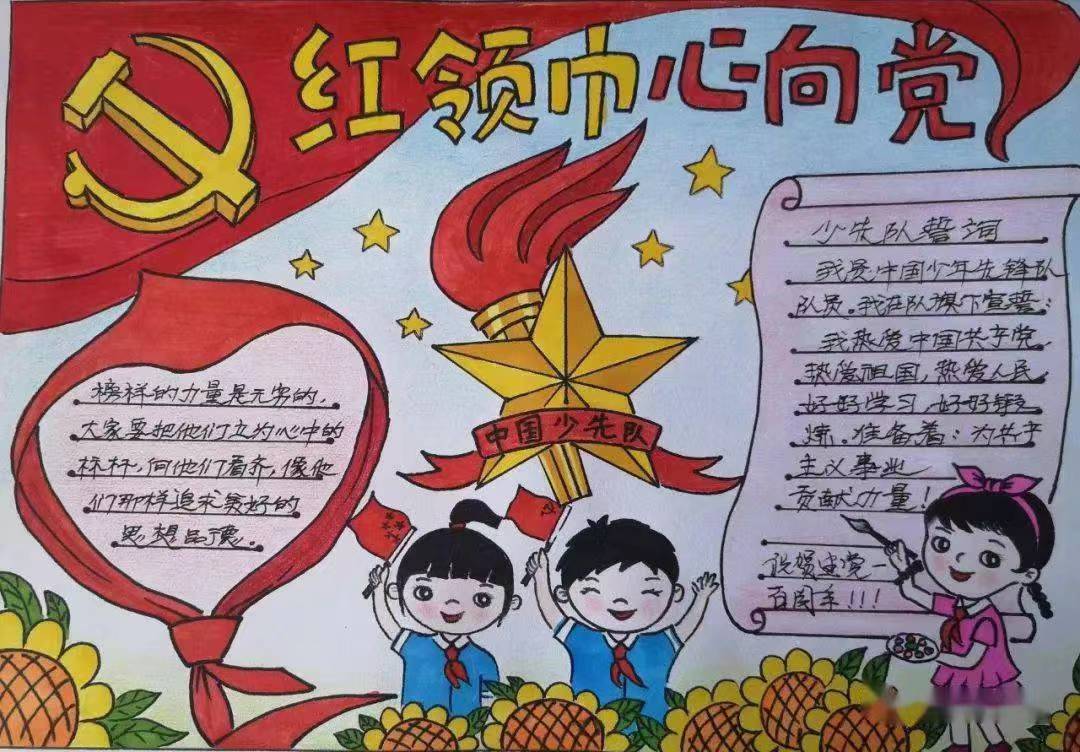 红领巾心向党
榜样的力量是无穷的，
大家要把他们立为心中的
标杆，向他们看齐，像他
们那样追求美好的
思想品德。
中国少先队
少先队誓词
我是中国少年先锋队
队员。我在队旗下宣誓：
我热爱中国共产党，
热爱祖国，热爱人民，
好好学习，好好锻
炼，准备着：为共产
主义事业
贡献力量！
祝贺建党一
百周年！！！